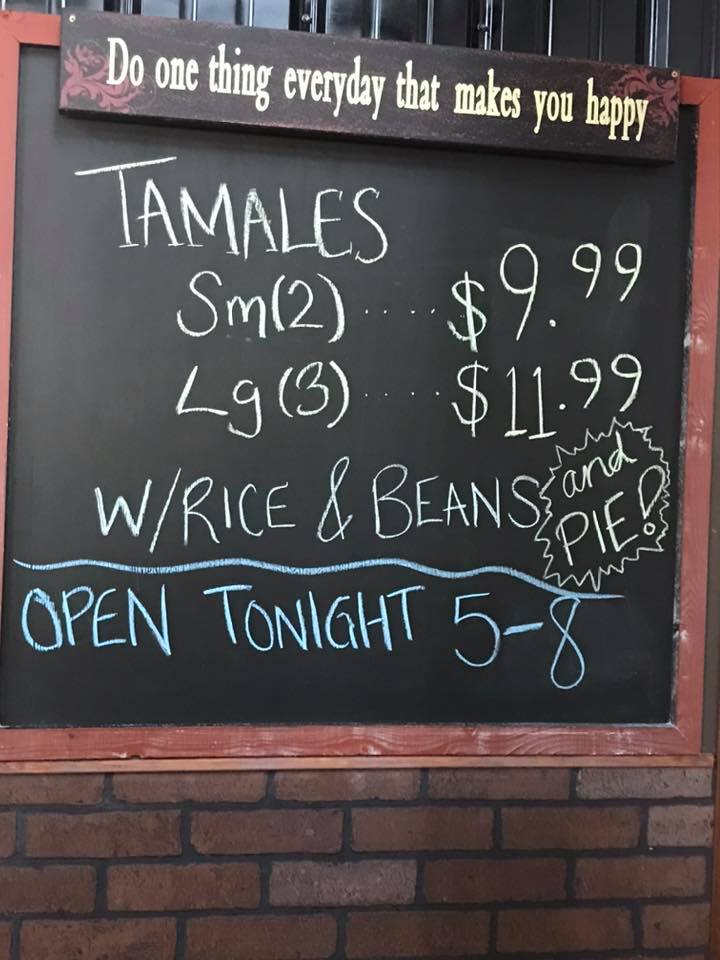 Do one thing everyday that makes you happy
TAMALES
Sm(2) .... $9.99
Lg (3) ..... $11.99
W/RICE & BEANS
and
PIE!
OPEN TONIGHT 5-8